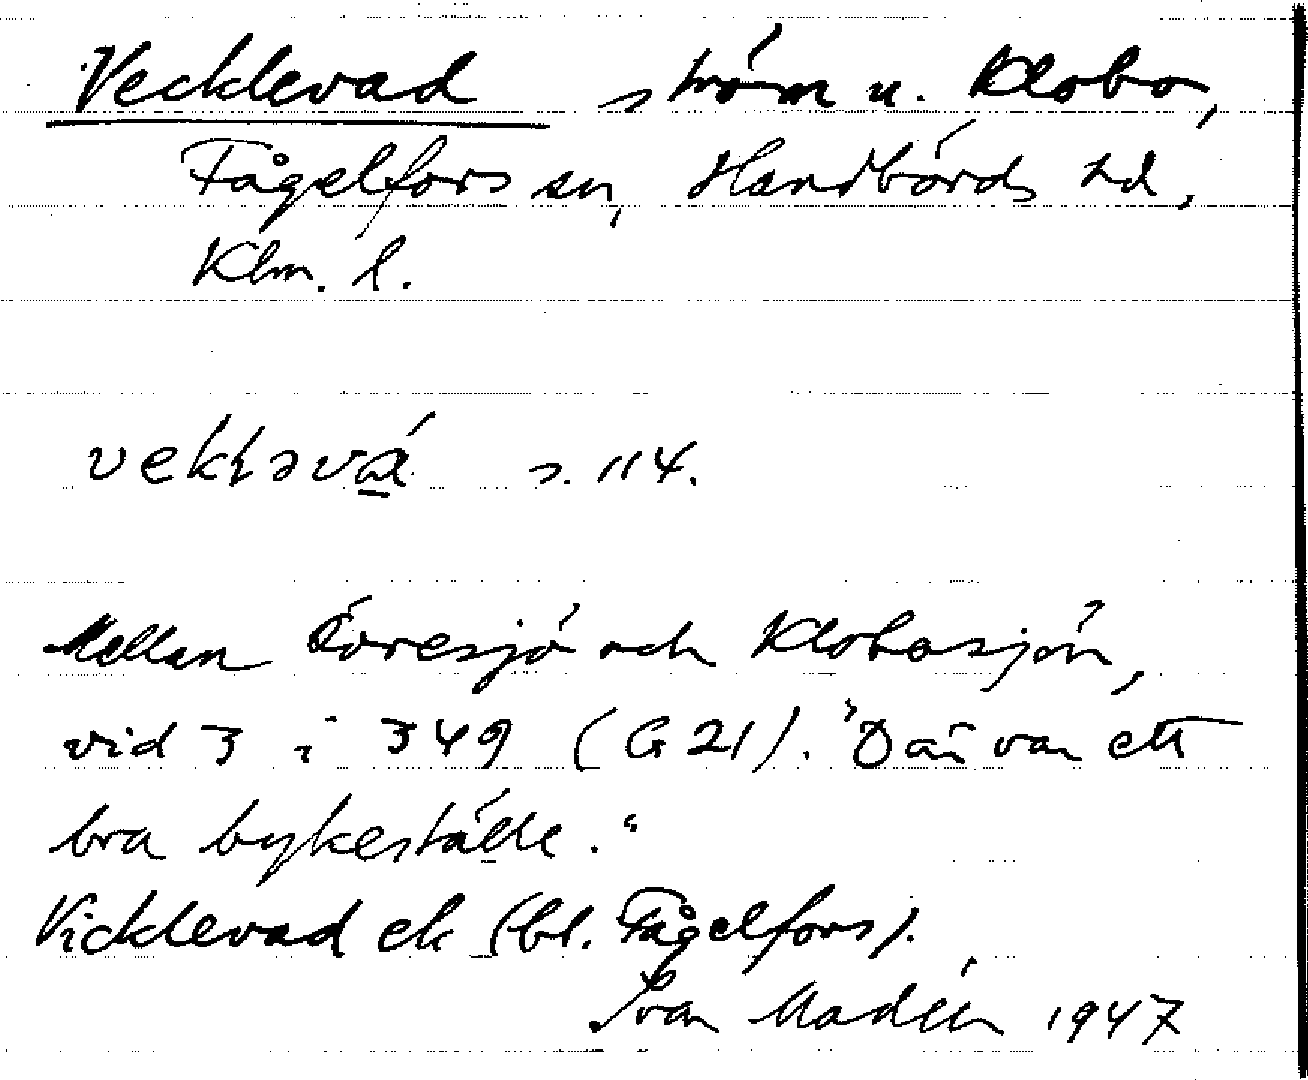 Vecklevad ström u. Klobo,
Fågelfors sn, Handbörds hd,
Klm. l.
s. 114.
Mellan Övresjö och Klobosjön,
vid 3 i 349 (G 21). "Där var ett
bra bykeställe."
Vicklevad ek (bl. Fågelfors).
Ivar Modéer 1947